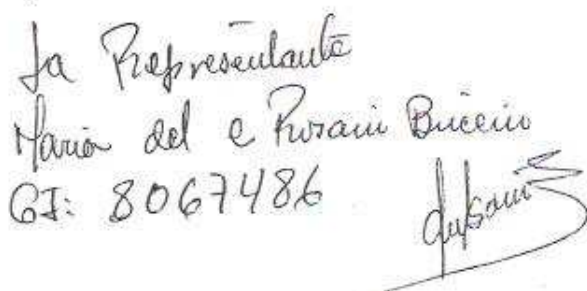 La Representante
Maria del C Rosani Briceño
CI: 8067486